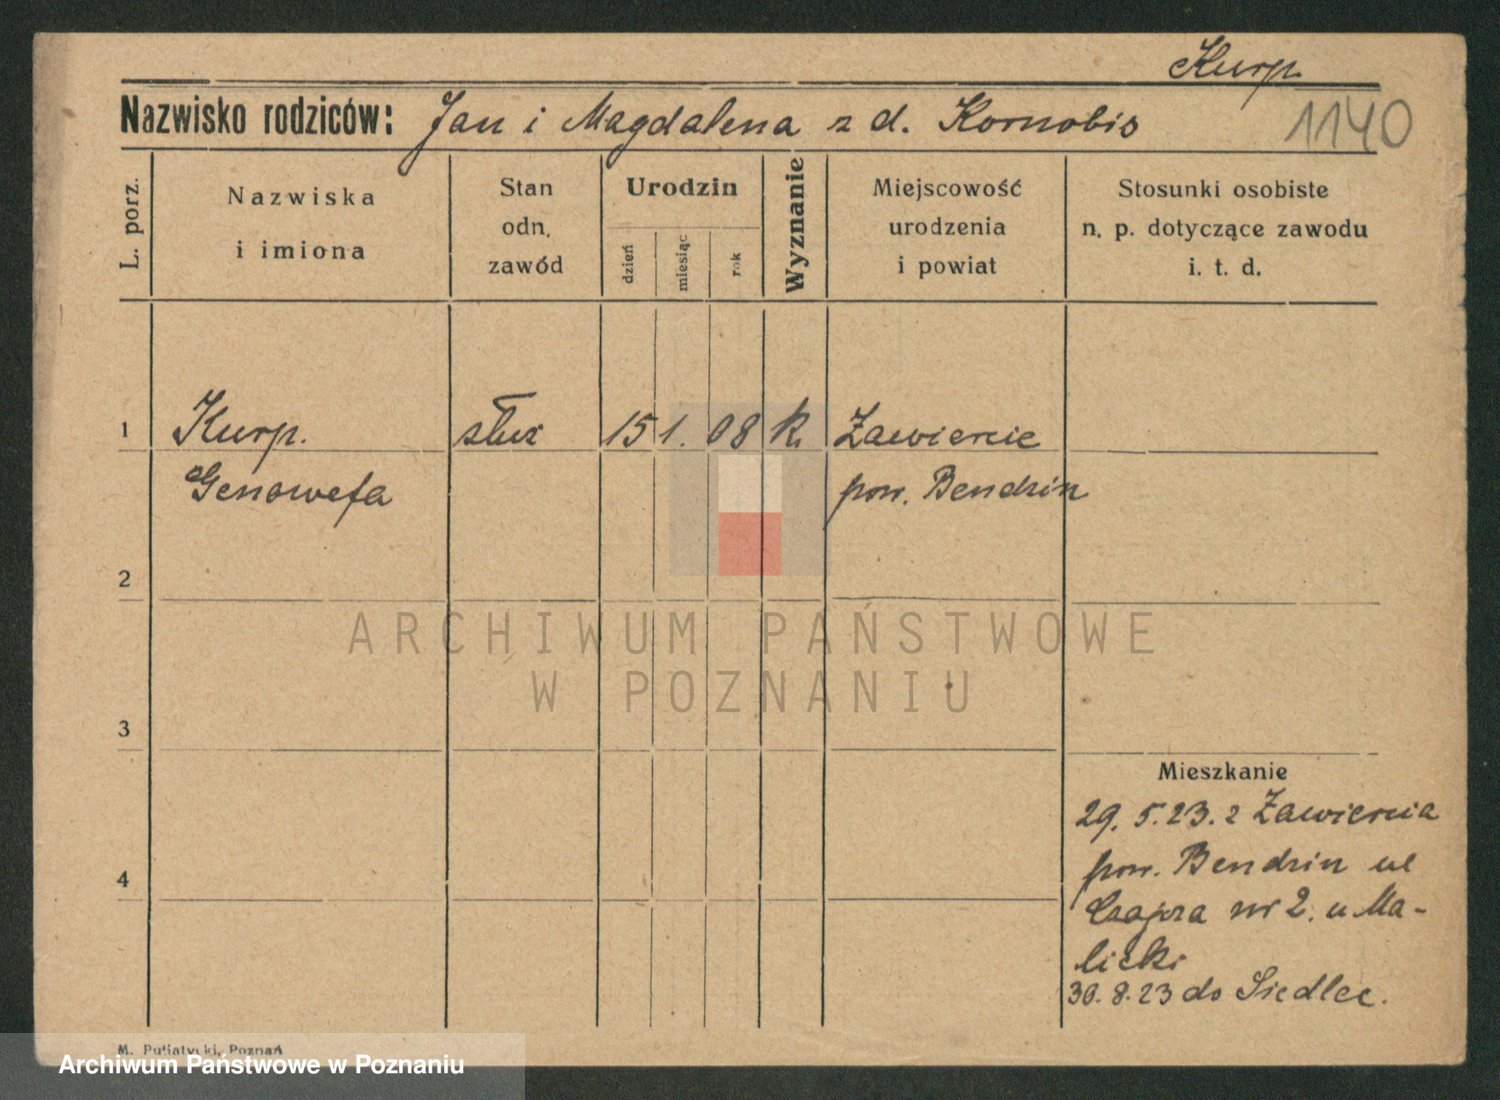 Kurp.
Nazwisko rodziców: Jan i Magdalena z d. Kornobis
1140
L. porz.
Nazwiska
i imiona
Stan
odn.
zawód
Urodzin
dzień
miesiąc
rok
Wyznanie
Miejscowość
urodzenia
i powiat
Stosunki osobiste
n. p. dotyczące zawodu
i. t. d.
1 Kurp. służ 15 1. 08 k. Zawiercie
Genowefa pow. Bendzin
2
ARCHIWUM PAŃSTWOWE
W POZNANIU
3
Mieszkanie
29. 5. 23. z Zawiercia
pow. Bendzin ul
4
nr 2. u Ma-
licki
30. 8. 23 do Siedlec.
M. Putiatycki, Poznań
Archiwum Państwowe w Poznaniu